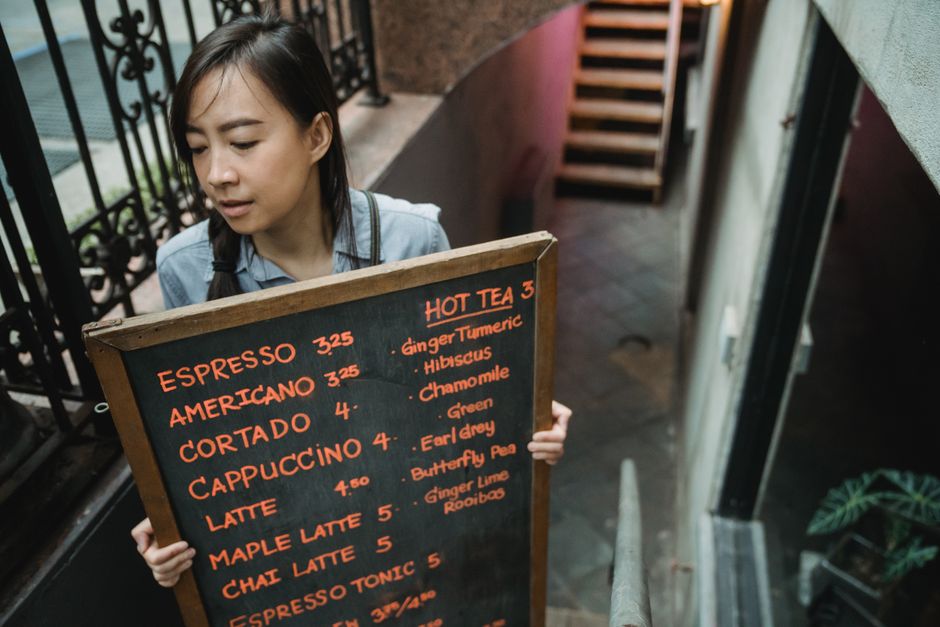 ESPRESSO 3.25
AMERICANO 3.25
CORTADO 4.
CAPPUCCINO 4.
LATTE 4.50
MAPLE LATTE 5
CHAI LATTE 5
ESPRESSO TONIC 5
3.75/4.50
4.50
HOT TEA 3
· Ginger Tumeric
· Hibiscus
· Chamomile
· Green
· Earl Grey
· Butterfly Pea
· Ginger Lime
Rooibos